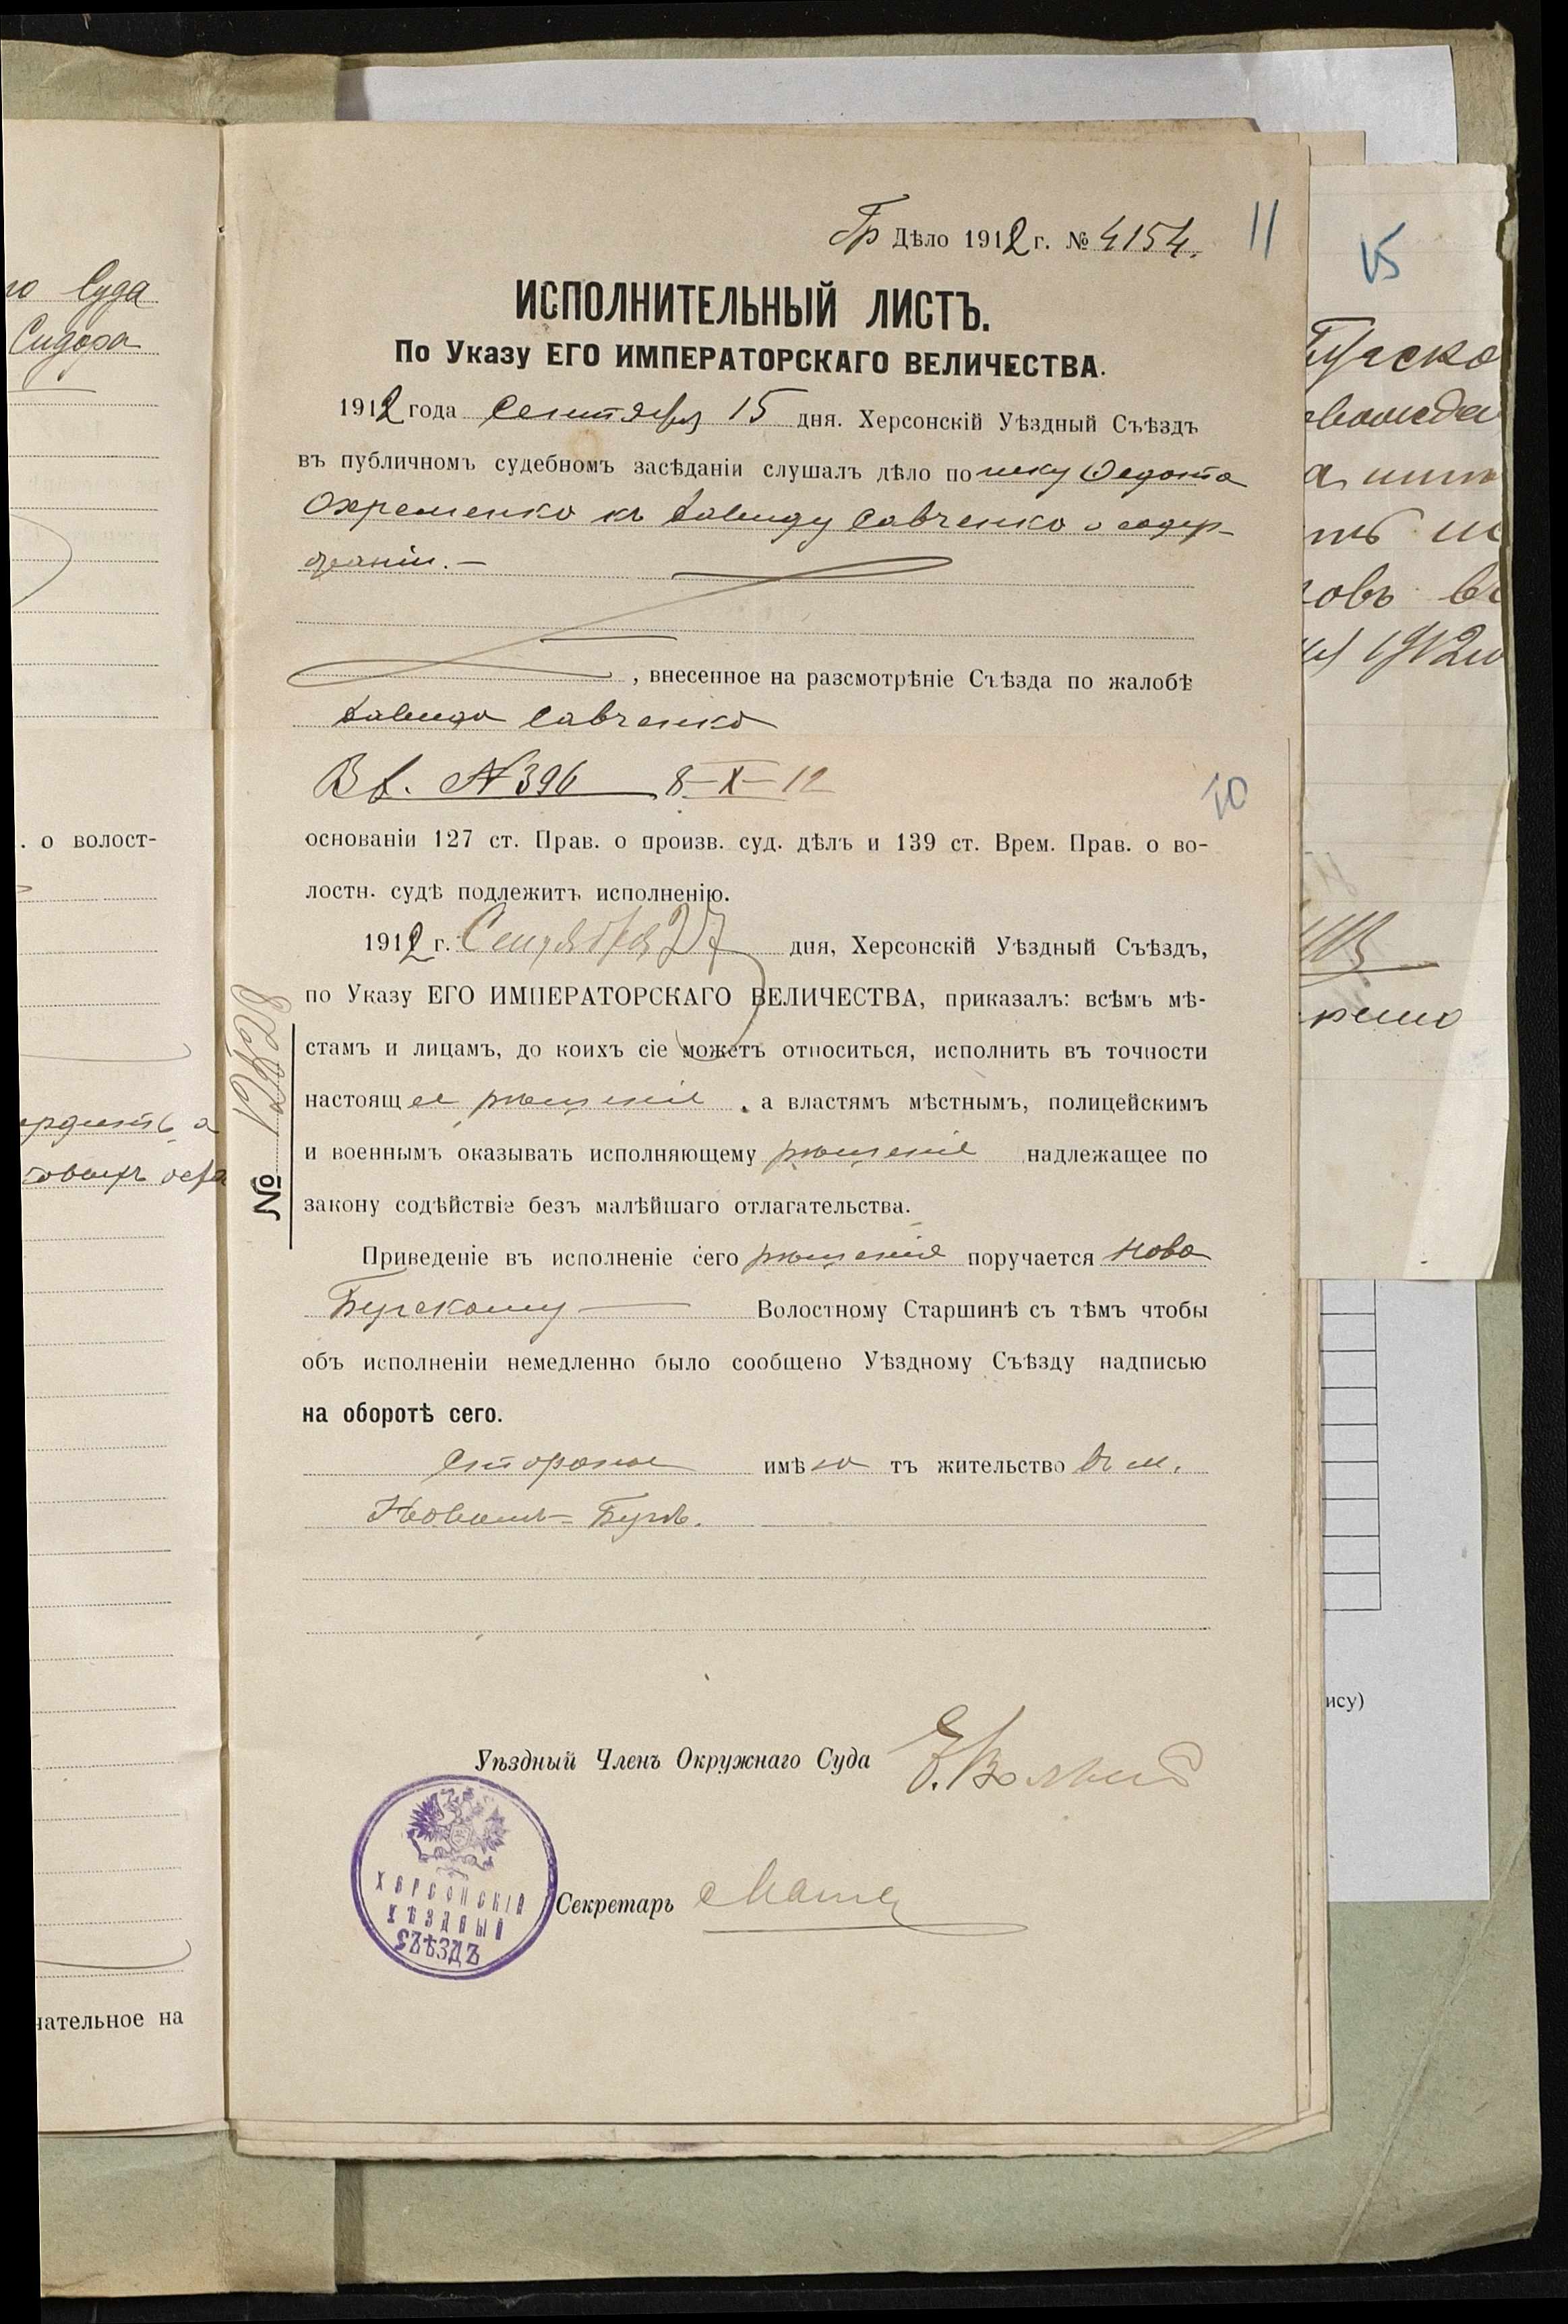 го Суда
Сидора
. о волост-
чательное на
Гр Дѣло 1912 г. № 4154.
11
ИСПОЛНИТЕЛЬНЫЙ ЛИСТЪ.
По Указу ЕГО ИМПЕРАТОРСКАГО ВЕЛИЧЕСТВА.
1912 года Сентября 15 дня. Херсонскій Уѣздный Съѣздъ
въ публичномъ судебномъ засѣданіи слушалъ дѣло по иску Федота
Охременко къ Давиду Савченко о содер-
жаніи. —
, внесенное на разсмотрѣніе Съѣзда по жалобѣ
Давида Савченко
В. № 396 8-X-12
10
основаніи 127 ст. Прав. о произв. суд. дѣлъ и 139 ст. Врем. Прав. о во-
лостн. судѣ подлежитъ исполненію.
1912 г. Сентября 27 дня, Херсонскій Уѣздный Съѣздъ,
по Указу ЕГО ИМПЕРАТОРСКАГО ВЕЛИЧЕСТВА, приказалъ: всѣмъ мѣ-
стамъ и лицамъ, до коихъ сіе можетъ относиться, исполнить въ точности
настоящее рѣшеніе, а властямъ мѣстнымъ, полицейскимъ
и военнымъ оказывать исполняющему рѣшеніе надлежащее по
закону содѣйствіе безъ малѣйшаго отлагательства.
Приведеніе въ исполненіе сего рѣшенія поручается Ново
Бугскому — Волостному Старшинѣ съ тѣмъ чтобы
объ исполненіи немедленно было сообщено Уѣздному Съѣзду надписью
на оборотѣ сего.
Стороны имѣютъ жительство въ м.
Новомъ-Бугѣ.
№
Уѣздный Членъ Окружнаго Суда
Секретарь
ХЕРСОНСКІЙ
УѢЗДНЫЙ
СЪѢЗДЪ
15
1912
ису)